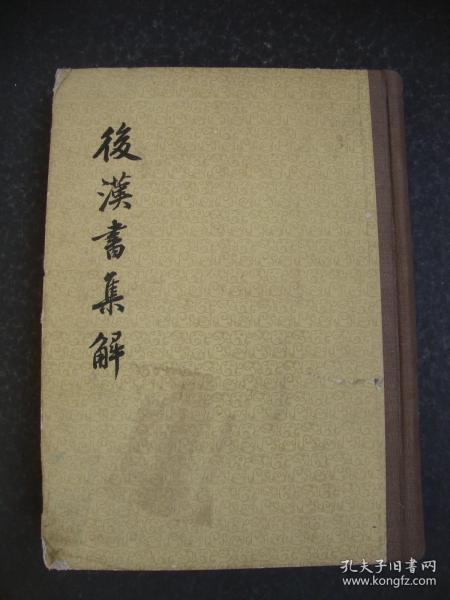 後漢書集解
孔夫子旧书网
www.kongfz.com